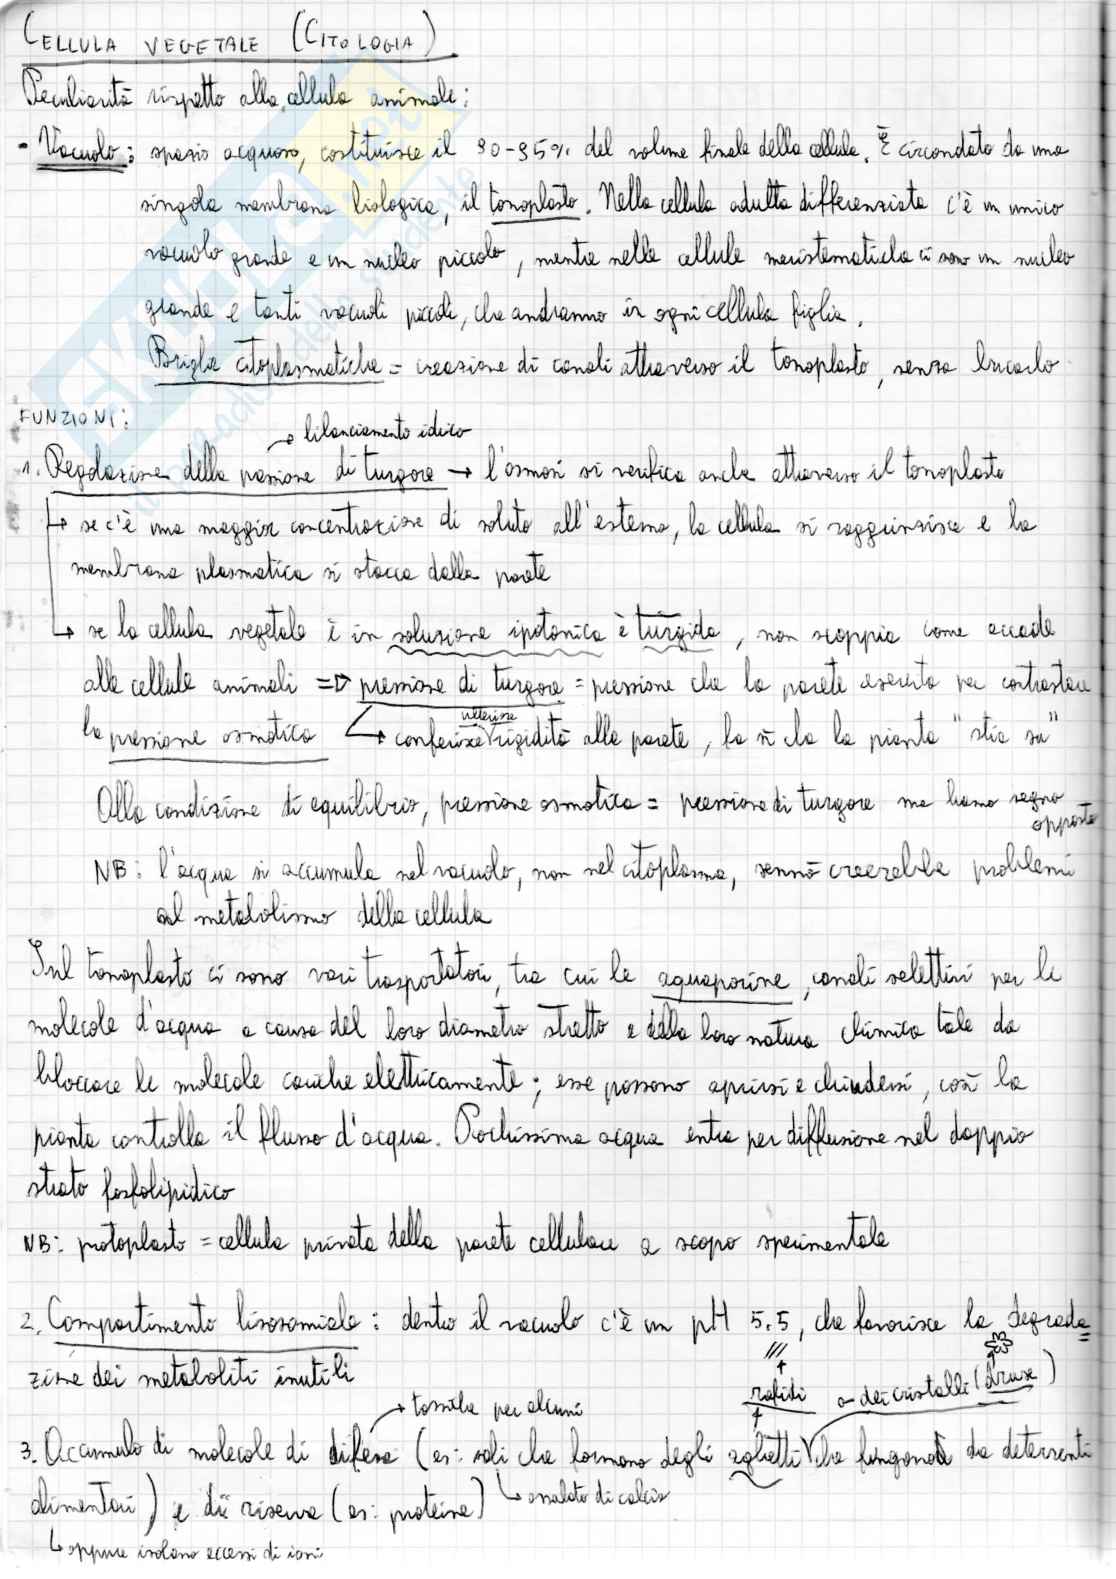 CELLULA VEGETALE (CITOLOGIA)
Peculiarità rispetto alla cellula animale:
- Vacuolo: spazio acquoso, costituisce il 90-95% del volume finale della cellula. È circondato da una
singola membrana biologica, il tonoplasto. Nella cellula adulta differenziata c'è un unico
vacuolo grande e un nucleo piccolo, mentre nelle cellule meristematiche ci sono un nucleo
grande e tanti vacuoli piccoli, che andranno in ogni cellula figlia.
Briglie citoplasmatiche = creazione di canali attraverso il tonoplasto, senza bucarlo
FUNZIONI:
→ bilanciamento idrico
1. Regolazione della pressione di turgore → l'osmosi si verifica anche attraverso il tonoplasto
↳ se c'è una maggior concentrazione di soluto all'esterno, la cellula si raggrinzisce e la
membrana plasmatica si stacca dalla parete
↳ se la cellula vegetale è in soluzione ipotonica è turgida, non scoppia come accade
alle cellule animali => pressione di turgore = pressione che la parete esercita per contrastare
la pressione osmotica ↳ conferisce ulteriore rigidità alla parete, fa sì che la pianta "stia su"
Alla condizione di equilibrio, pressione osmotica = pressione di turgore ma hanno segno
opposto
NB: l'acqua si accumula nel vacuolo, non nel citoplasma, sennò creerebbe problemi
al metabolismo della cellula
Sul tonoplasto ci sono vari trasportatori, tra cui le aquaporine, canali selettivi per le
molecole d'acqua a causa del loro diametro stretto e della loro natura chimica tale da
bloccare le molecole cariche elettricamente; esse possono aprirsi e chiudersi, così la
pianta controlla il flusso d'acqua. Pochissima acqua entra per diffusione nel doppio
strato fosfolipidico
NB: protoplasto = cellula privata della parete cellulare a scopo sperimentale
2. Compartimento lisosomiale: dentro il vacuolo c'è un pH 5,5, che favorisce la degrada
zione dei metaboliti inutili
rafidi o dei cristalli (druse)
→ tossiche per alcuni
3. Accumulo di molecole di difesa (es: sali che formano degli aghetti che fungono da deterrenti
alimentari) e di riserva (es: proteine) ↳ ossalato di calcio
↳ oppure isolano eccessi di ioni